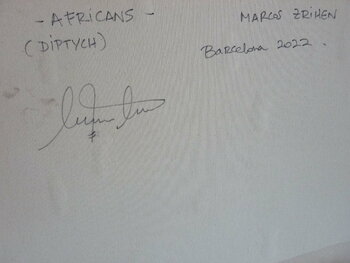 - AFRICANS -
(DIPTYCH)
MARCOS ZRIHEN
Barcelona 2022.